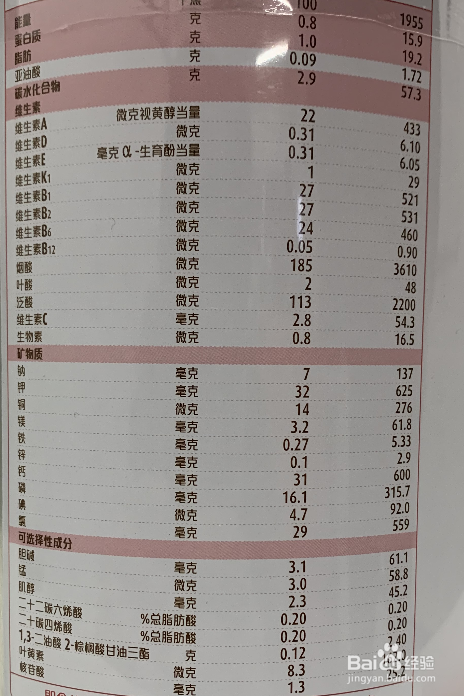 能量 100 1955
蛋白质 克 0.8 15.9
脂肪 克 1.0 19.2
亚油酸 克 0.09 1.72
碳水化合物 克 2.9 57.3
维生素
维生素A 微克视黄醇当量 22 433
维生素D 微克 0.31 6.10
维生素E 毫克 α-生育酚当量 0.31 6.05
维生素K1 微克 1 29
维生素B1 微克 27 521
维生素B2 微克 27 531
维生素B6 微克 24 460
维生素B12 微克 0.05 0.90
烟酸 微克 185 3610
叶酸 微克 2 48
泛酸 微克 113 2200
维生素C 毫克 2.8 54.3
生物素 微克 0.8 16.5
矿物质
钠 毫克 7 137
钾 毫克 32 625
铜 微克 14 276
镁 毫克 3.2 61.8
铁 毫克 0.27 5.33
锌 毫克 0.1 2.9
钙 毫克 31 600
磷 毫克 16.1 315.7
碘 微克 4.7 92.0
氯 毫克 29 559
可选择性成分
胆碱 毫克 3.1 61.1
锰 微克 3.0 58.8
肌醇 毫克 2.3 45.2
二十二碳六烯酸 %总脂肪酸 0.20 0.20
二十碳四烯酸 %总脂肪酸 0.20 0.20
1,3-二油酸 2-棕榈酸甘油三酯 克 0.12 2.40
叶黄素 微克 8.3
核苷酸 毫克 1.3 25.2
Baidu经验
jingyan.baidu.com